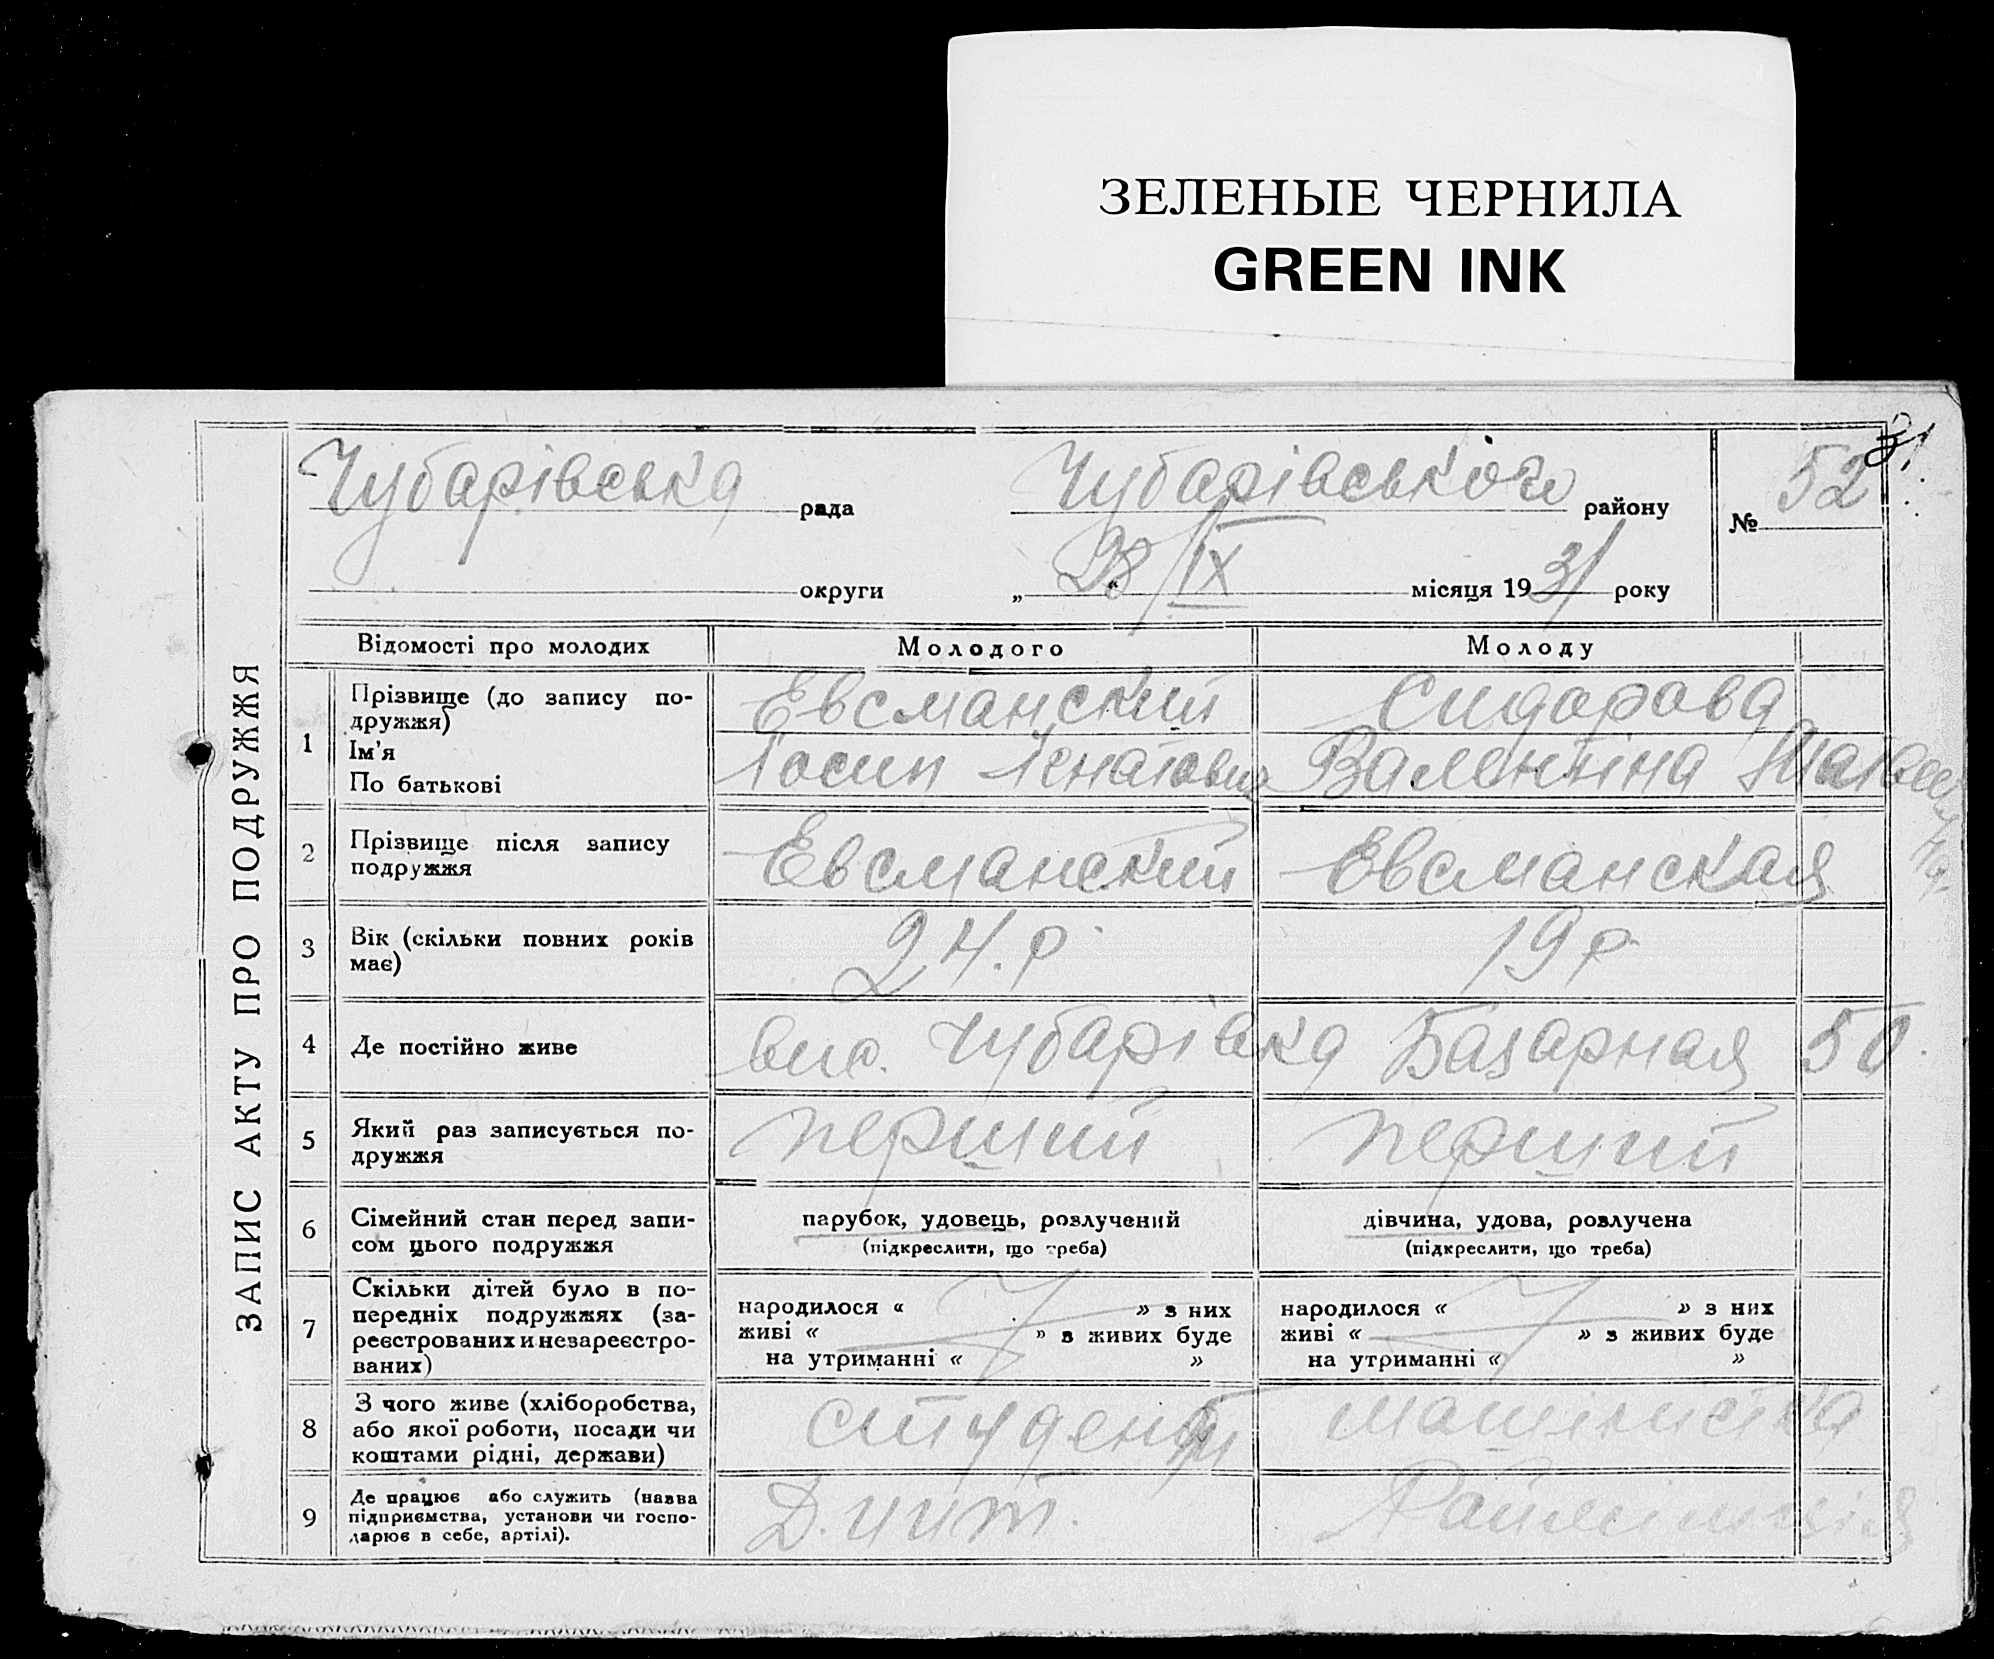 ЗЕЛЕНЫЕ ЧЕРНИЛА
GREEN INK
31
ЗАПИС АКТУ ПРО ПОДРУЖЖЯ
Чубарівська рада Чубарівського району № 52
округи „ 28 “ IX місяця 1931 року
Відомості про молодих Молодого Молоду
1 Прізвище (до запису по-
дружжя)
Евсманский Сидорова
Ім'я
По батькові
Іосип Ігнатович Валентіна
2 Прізвище після запису
подружжя
Евсманский Евсманская
3 Вік (скільки повних років
має)
24. р. 19 р
4 Де постійно живе вис. Чубарівка Базарная 50.
5 Який раз записується по-
дружжя
перший перший
6 Сімейний стан перед запи-
сом цього подружжя
парубок, удовець, розлучений дівчина, удова, розлучена
(підкреслити, що треба) (підкреслити, що треба)
7 Скільки дітей було в по-
передніх подружжях (за-
реєстрованих и незареєстро-
ваних)
народилося « » з них народилося « » з них
живі « » з живих буде живі « » з живих буде
на утриманні « » на утриманні « »
8 З чого живе (хліборобства,
або якої роботи, посади чи
коштами рідні, держави)
студент машиністка
9 Де працює або служить (назва
підприємства, установи чи госпо-
дарює в себе, артілі).
Д. Райміліція